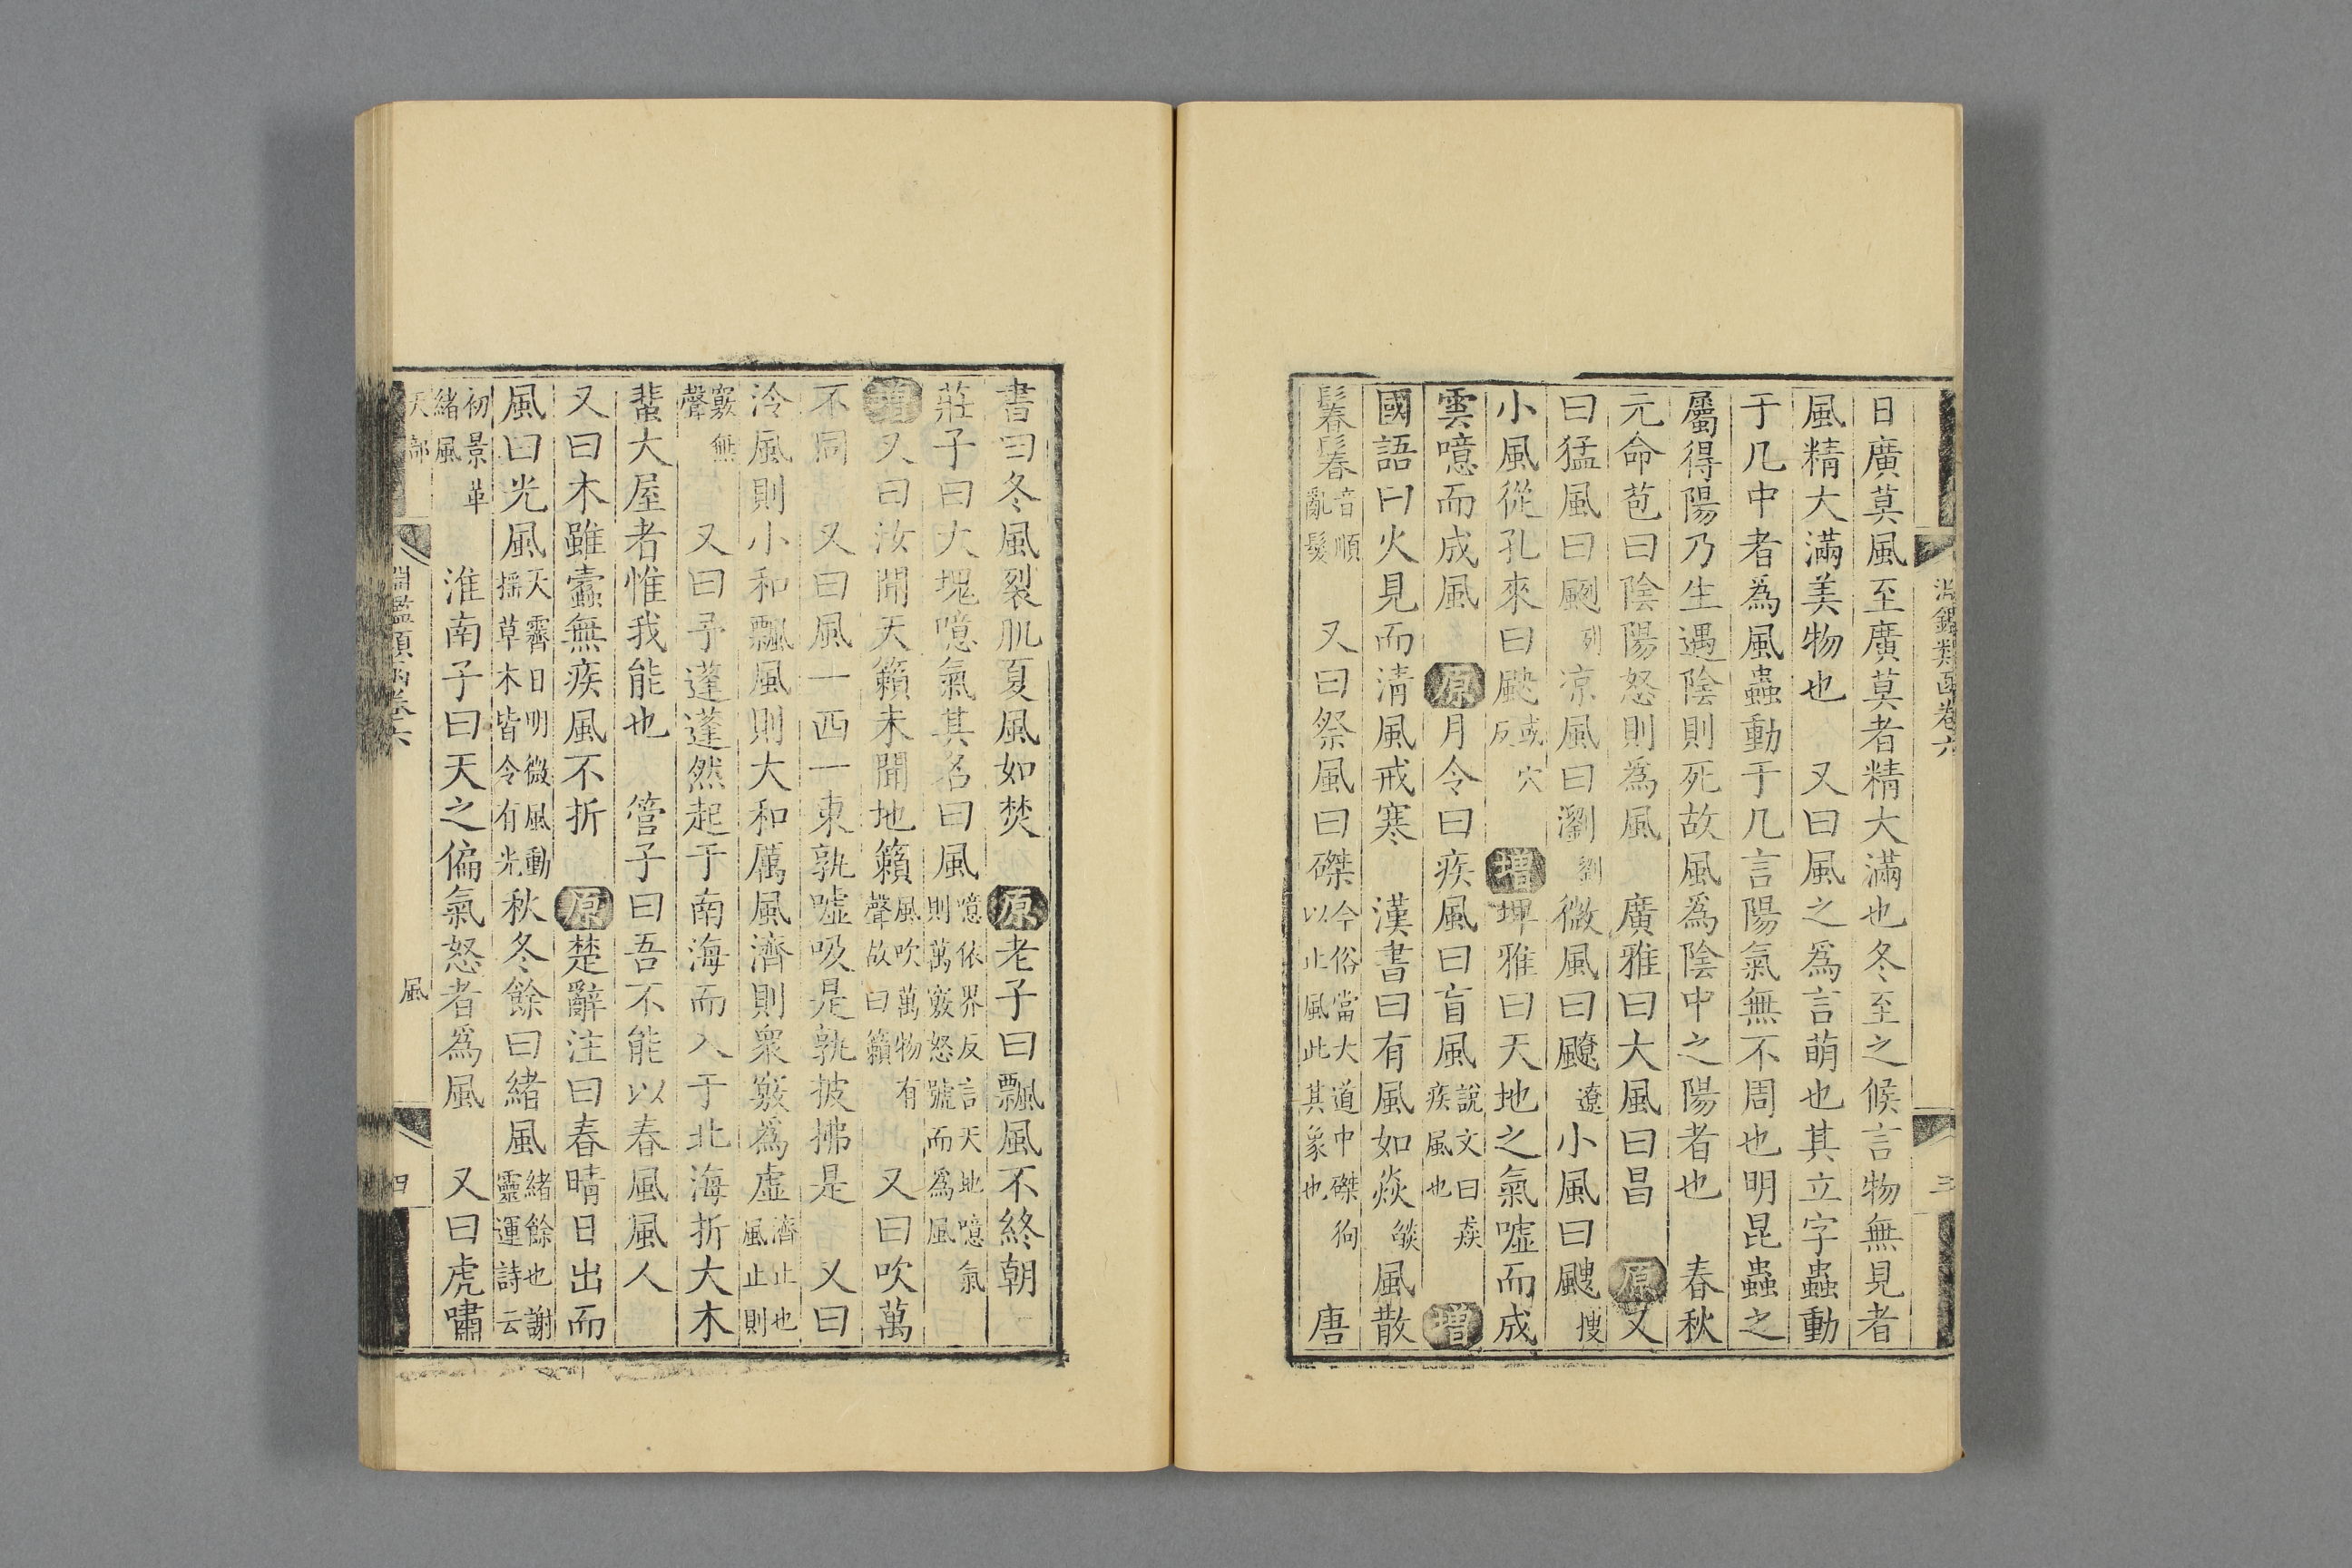 淵鑑類函卷六
三
日廣莫風至廣莫者精大滿也冬至之候言物無見者
風精大滿美物也 又曰風之爲言萌也其立字蟲動
于几中者爲風蟲動于几言陽氣無不周也明昆蟲之
屬得陽乃生遇陰則死故風爲陰中之陽者也 春秋
元命苞曰陰陽怒則爲風 廣雅曰大風曰昌 原又
曰猛風曰颲列凉風曰瀏劉微風曰飉遼小風曰颼搜
小風從孔來曰䫻或穴反 增埤雅曰天地之氣噓而成
雲噫而成風 原月令曰疾風曰盲風說文曰猋疾風也 增
國語曰火見而淸風戒寒 漢書曰有風如焱㷋風散
鬊鬊音順亂髮 又曰祭風曰磔今俗當大道中磔狗以止風此其象也 唐
書曰冬風裂肌夏風如焚 原老子曰飄風不終朝
莊子曰大塊噫氣其名曰風噫依界反言天地噫氣則萬竅怒號而爲風
增又曰汝聞天籟未聞地籟風吹萬物有聲故曰籟 又曰吹萬
不同 又曰風一西一東孰噓吸是孰披拂是 又曰
泠風則小和飄風則大和厲風濟則衆竅爲虛濟止也風止則
竅無聲 又曰予蓬蓬然起于南海而入于北海折大木
蜚大屋者惟我能也 管子曰吾不能以春風風人
又曰木雖蠹無疾風不折 原楚辭注曰春晴日出而
風曰光風天霽日明微風動搖草木皆令有光秋冬餘曰緒風緒餘也謝靈運詩云
初景革緒風 淮南子曰天之偏氣怒者爲風 又曰虎嘯
天部
淵鑑類函卷六
風
四